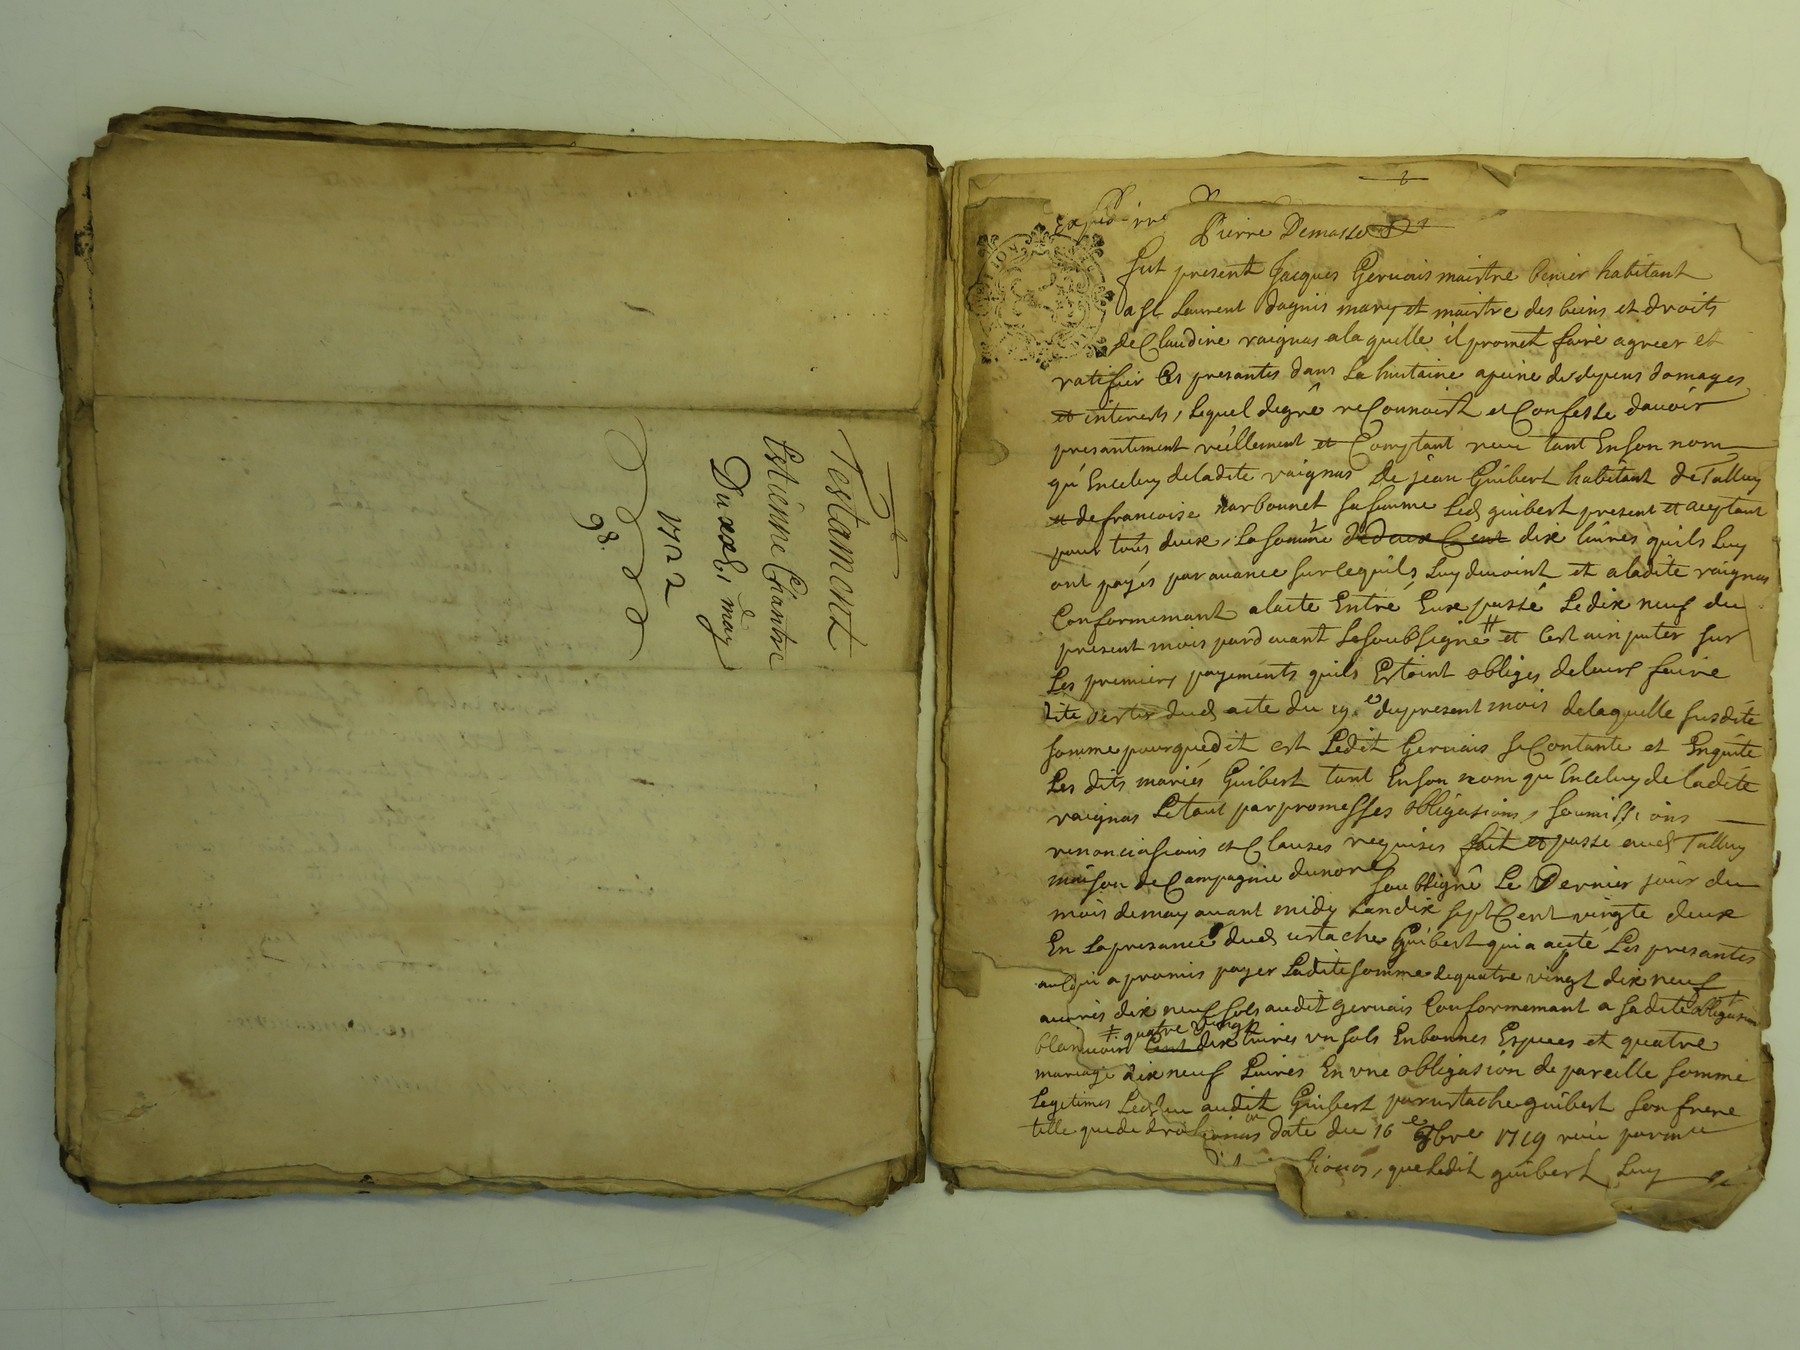 Testament
Estienne Chantre
Du xxe may
1722
98.
expédié
Pierre Demasse
fut present Jacques Gervais maistre habitant
a St Laurent dagnis mary et maistre des biens et droits
de Claudine raignas a la quelle il promet faire agreer et
ratifier Ces presantes dans La huitaine apeine de depens domages
et interests, Lequel degré reConnoist et Confesse dauoir
presantement réellement et Comptant receu tant En son nom
qu'En celuy de ladite raignas De jean Guibert habitant de Talluy
et de francoise narbonnet sa femme Led guibert present et aceptant
pour tous deux, La somme de deux Cent dix liures quils Luy
ont payés par auance sur ce quils Luy deuoint et a ladite raignas
Conformemant a lacte Entre Eux passé Le dix neuf du
present mois pardeuant Le soubsigné # et C'est a imputer sur
Les premiers payements quils Estoint obliges de leurs faire
dud acte du 19.e du present mois de laquelle susdite
somme pour que dit est Ledit Gervais se Contante et En quite
Les dits mariés Guibert tant En son nom qu'En celuy de ladite
raignas Le tout par promesses obligations, soumissions
renonciations et Clauses requises fait et passé aud Talluy
maison de Campagne du nore soubsigné Le Dernier jour du
mois de may auant midy Lan dix sept Cent vingte deux
En La presance dud ustache Guibert qui a acepté Les presantes
a promis payer Ladite somme de quatre vingt dix neuf
liures dix neuf sols audit gervais Conformemant a sadite obligasion
# quatre vingt
Cent dix liures vn sols En bonnes Especes et quatre
dix neuf Liures En vne obligasion de pareille somme
Legitimes audit Guibert par ustache guibert son frere
telle que de droit date du 16e 9bre 1719 receu par moy
que Ledit guibert Luy